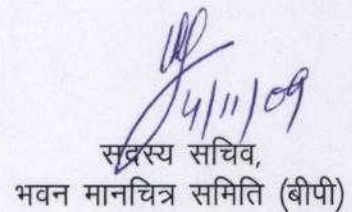 4/11/09
सदस्य सचिव,
भवन मानचित्र समिति (बीपी)